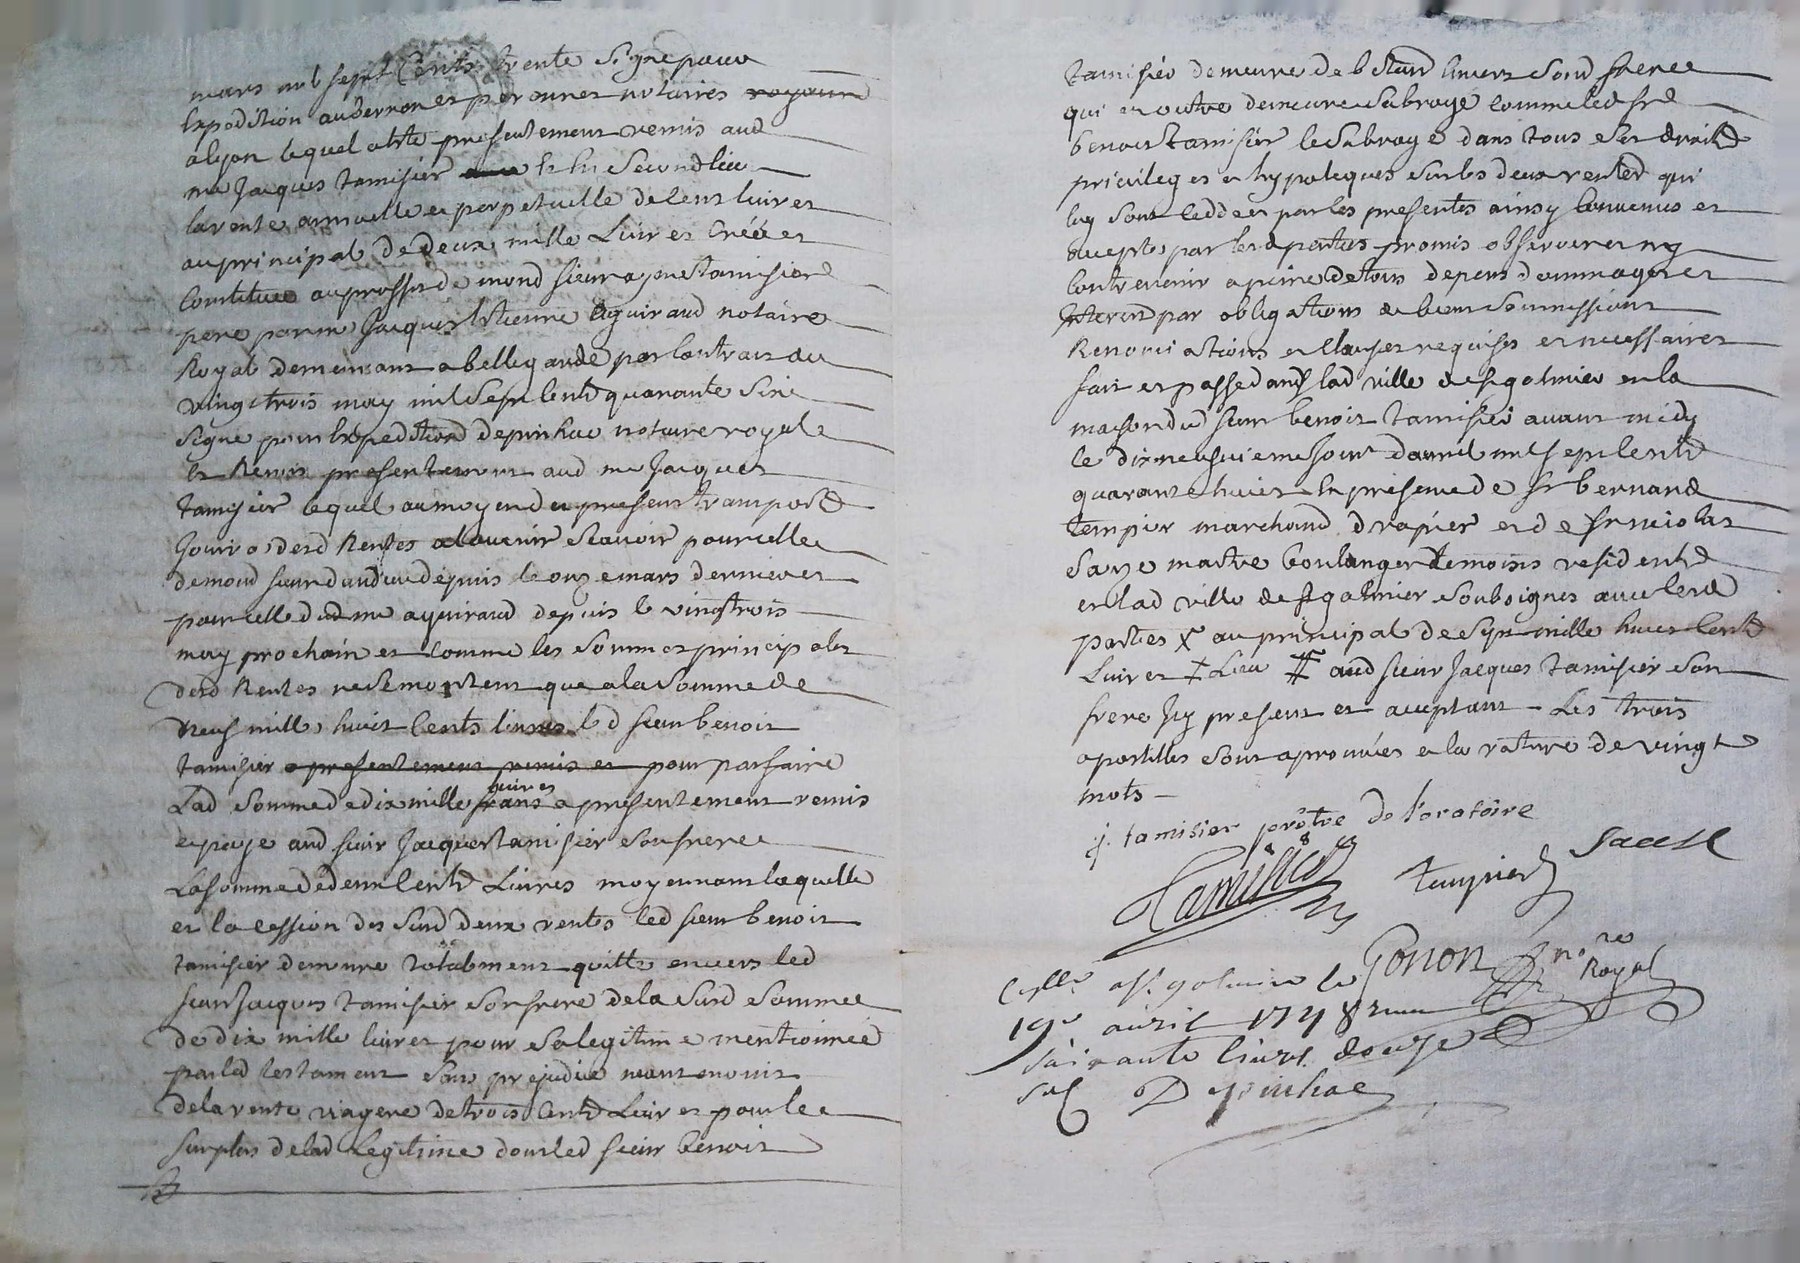 mars mil sept Cents trente Signé pour
Expedition aubernon et peronnet notaires royaux
a lyon lequel a ete presentement remis aud
me Jacques tamisier En Second lieu
la rente annuelle et perpetuelle de Cent livres
au principal de deux mille Livres Créée et
Constituee au proffit de mond sieur tamisier
pere par me Jacques Estienne Aguiraud notaire
Royal demeurant a bellegarde par Contrat du
vingt trois may mil Sept Cents quarante Six
signé pour Expedition depinhac notaire royal
et Remis presentement aud me Jacques
tamisier lequel au moyen du present transport
Jouira desd Rentes a lavenir Scavoir pour celle
de mond sieur depuis le onze mars dernier et
pour celle dud me aguiraud depuis le vingt trois
may prochain et comme les Sommes principales
desd Rentes ne Se montent que a la Somme de
Neuf mille huit Cents livres led sieur benoit
tamisier a presentement remis et pour parfaire
Lad Somme de dix mille frans livres a presentement remis
et paye aud sieur Jacques tamisier son frere
La somme de deux Cents Livres moyennant laquelle
et la cession des susd deux rentes led sieur benoit
tamisier demeure totalement quitte envers led
sieur Jacques tamisier son frere de la susd Somme
de dix mille livres pour Sa legitime mentionnée
par led testament Sans prejudice neant moins
de la rente viagere de trois Cents Livres pour le
surplus de lad legitime dont led sieur benoit
tamisier demeure debiteur Envers Sond frere
qui en outre demeure Subrogé comme led sr
benoit tamisier le Subroge dans tous Ses droits
privileges et hypoteques sur les deux rentes qui
luy sont cedées par les presentes ainsy Convenus et
accepté par les d parties promis observer et ny
Contrevenir a peine de tous depens dommages et
Interets par obligations de biens Soumissions
Renonciations et Clauses requises et necessaires
fait et passé dans lad ville de st galmier en la
maison du d sieur benoit tamisier avant midy
le dix neufvieme Jour d avril mil sept Cents
quarante huit En presence de sr bernard
tempier marchand drapier et de sr nicolas
maitre boulanger temoins residents
en lad ville de st galmier Soubsignes avec lesd
parties X au principal de Sept mille huit Cents
Livres ‡ Lieu # aud sieur Jacques tamisier son
frere Icy present et acceptant - Les trois
apostilles sont aprouvées et la rature de vingt
mots -
j. tamisier prêtre de l'oratoire
Tamisier tempier
Gonon nore Royal
Conllé a st galmier le
19e avril 1748 recu
soixante livres douze
sol Depinhac